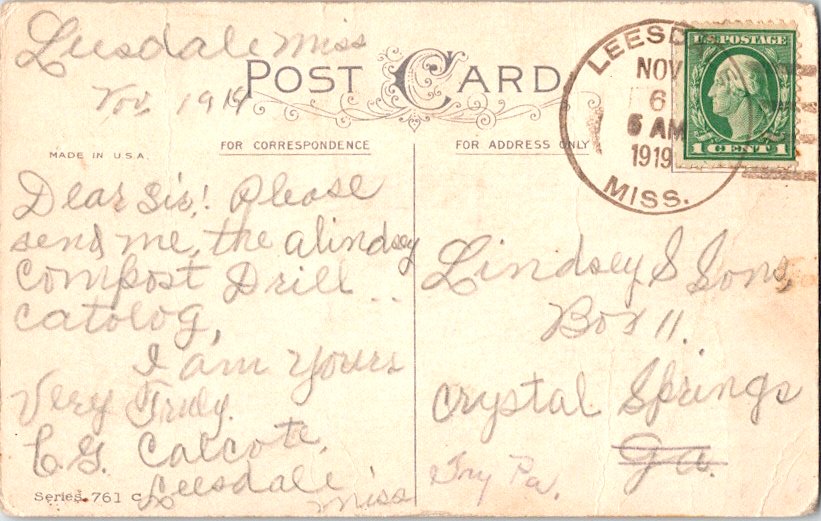 Leesdale Miss
Nov, 1919
POST CARD
MADE IN U.S.A.
FOR CORRESPONDENCE
FOR ADDRESS ONLY
LEESD
NOV
6
6 AM
1919
MISS.
U.S. POSTAGE
1 CENT 1
Dear Sir! Please
send me, the a lindsey
Compost Drill
catolog,
I am yours
Very Truly.
C G. Calcote,
Leesdale
Miss
Lindsey & Sons,
Box 11.
Crystal Springs
Ga.
Try Pa.
Series 761 C